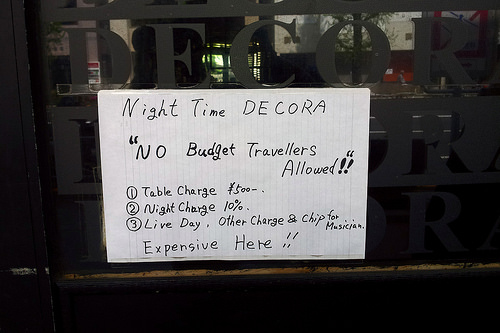 DECOR
Night Time DECORA
"NO Budget Travellers
Allowed!!"
① Table Charge ¥500-.
② Night Charge 10%.
③ Live Day, Other Charge & Chip for
Musician.
Expensive Here !!